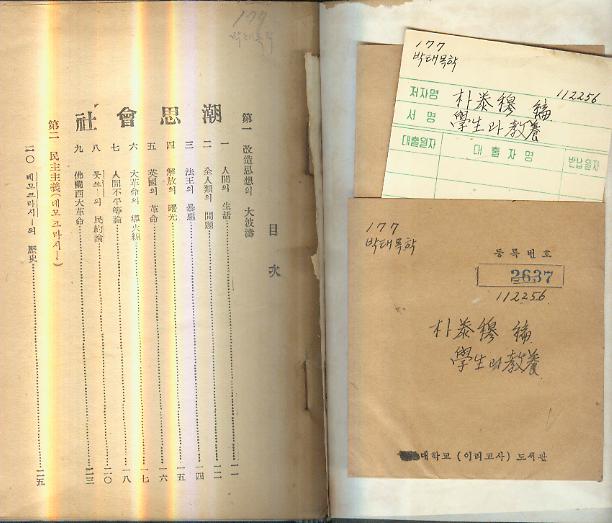 177
박태목학
社會思潮
目次
第一 改造思想의 大波濤
一 人間의 生活
二 全人類의 問題
三 法王의 暴壓
四 解放의 曙光 一五
五 英國의 革命 一六
六 大革命의 導火線 一七
七 人間不平等論 一八
八 民約論 二〇
九 佛蘭西大革命 二三
第二 民主主義(데모크라시ー)
二〇 데모크라시ー의 歷史 二五
177
박태목학
112256
저자명 朴泰穆 編
서명 學生과 敎養
대출일자 대출자명 반납일자
177
박태목학
등록번호
2637
112256
朴泰穆 編
學生과 敎養
대학교 (이리고사) 도서관